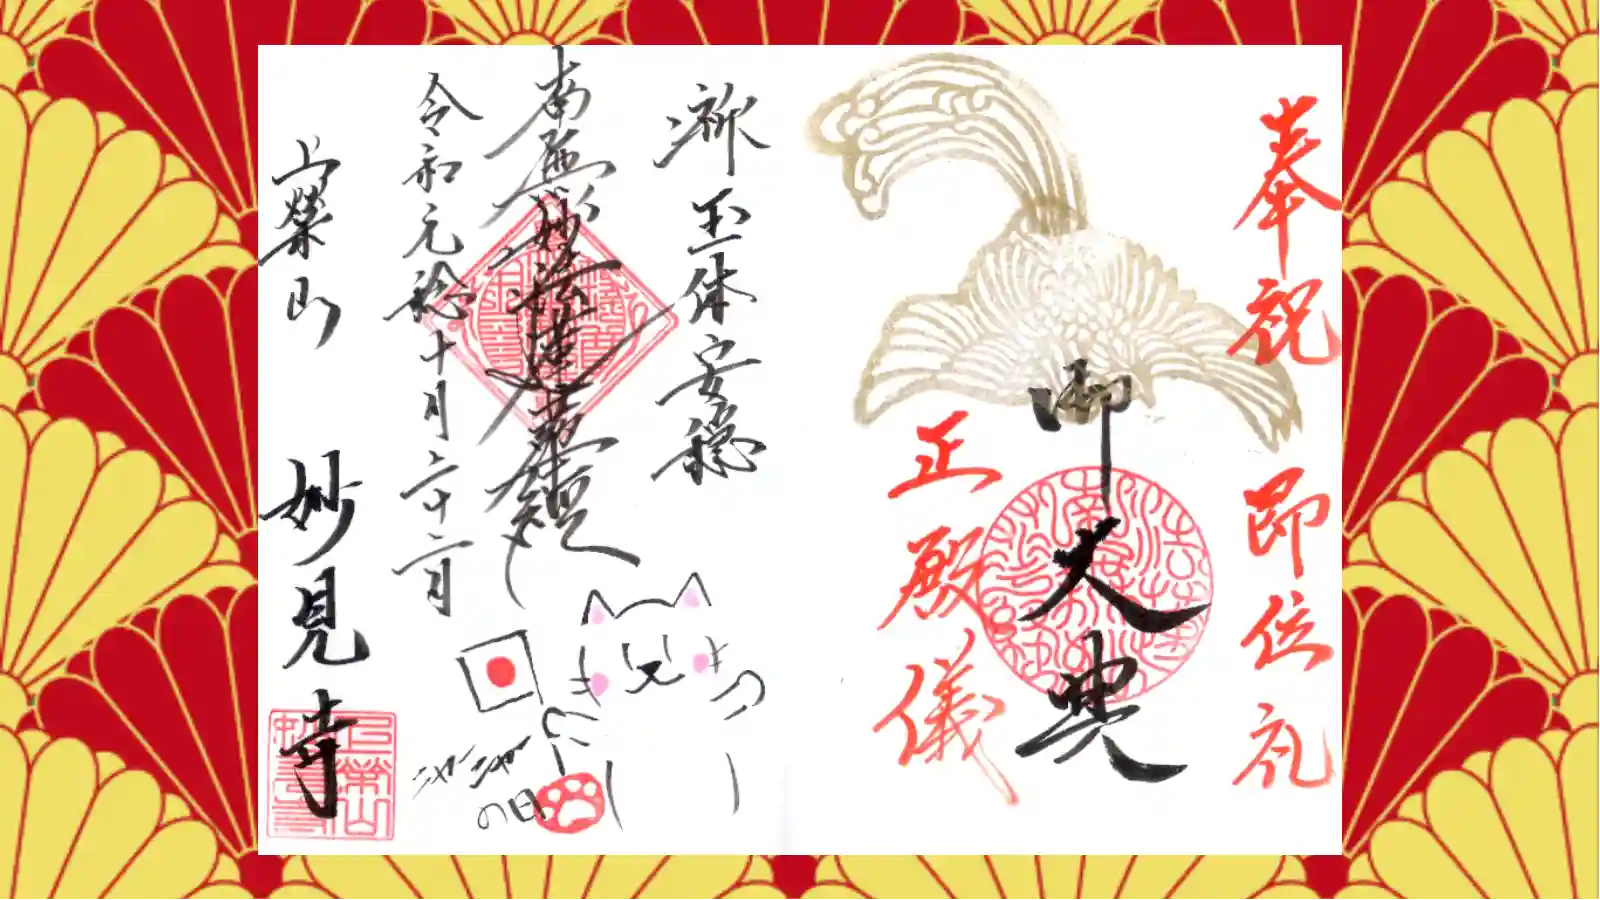 奉祝 即位礼
正殿儀
御大典
祈 玉体安穏
南無妙法蓮華経
令和元稔十月二十二日
上榮山 妙見寺
ニャンニャン
の日